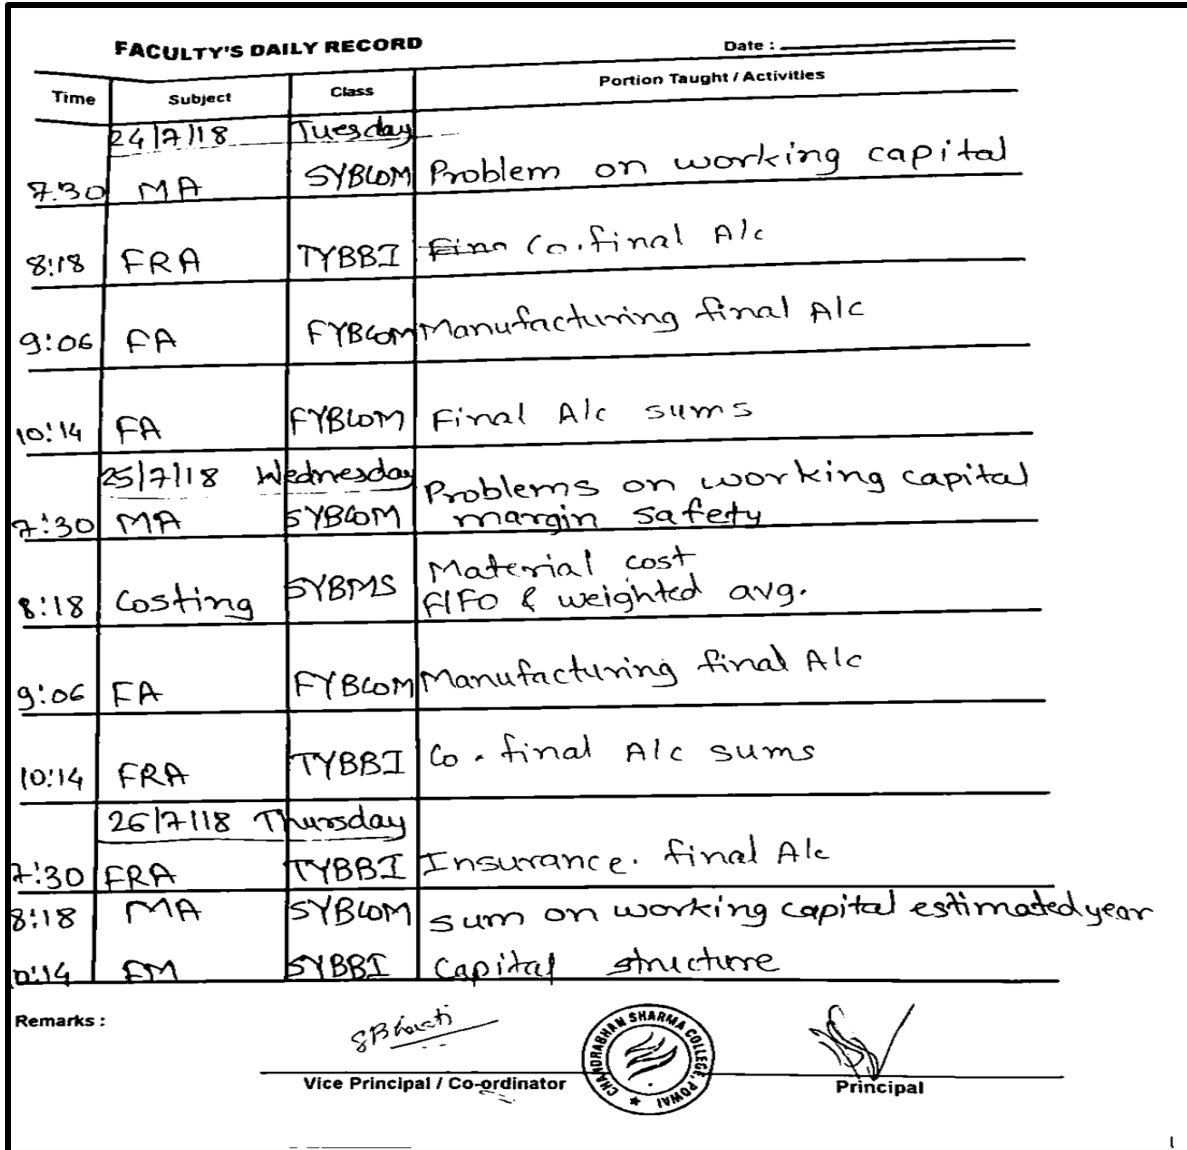 FACULTY'S DAILY RECORD Date :
Time Subject Class Portion Taught / Activities
24/7/18 Tuesday
7:30 MA SYBCOM Problem on working capital
8:18 FRA TYBBI Co. final A/c
9:06 FA FYBCOM Manufacturing final A/c
10:14 FA FYBCOM Final A/c sums
25/7/18 Wednesday
7:30 MA SYBCOM Problems on working capital
margin safety
8:18 Costing SYBMS Material cost
FIFO & weighted avg.
9:06 FA FYBCOM Manufacturing final A/c
10:14 FRA TYBBI Co. final A/c sums
26/7/18 Thursday
7:30 FRA TYBBI Insurance. final A/c
8:18 MA SYBCOM sum on working capital estimated year
0:14 FM SYBBI Capital structure
Remarks :
CHANDRABHAN SHARMA COLLEGE, POWAI
Vice Principal / Co-ordinator Principal